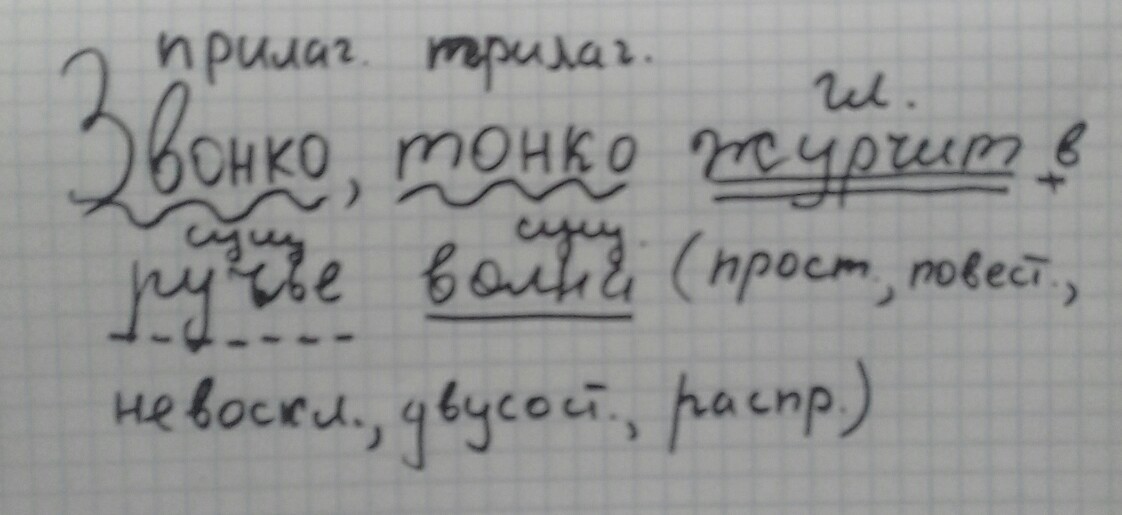 прилаг. прилаг. гл.
Звонко, тонко журчит в
сущ сущ.
ручье волна (прост., повест.,
невоскл., двусост., распр.)